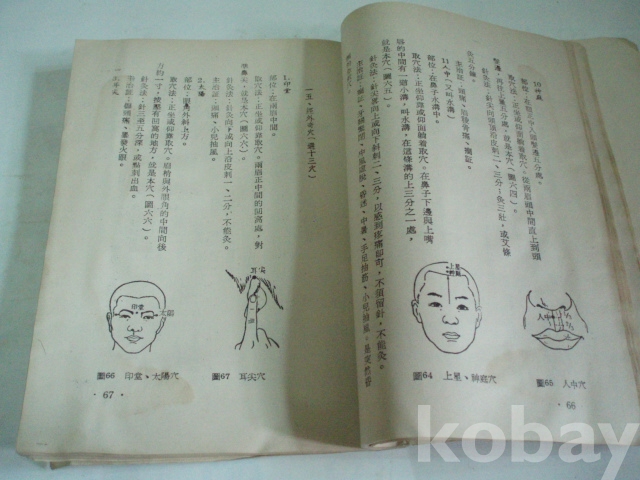 10.神庭
部位:在前正中入髮際五分處。
取穴法:正坐或仰面靠着取穴。從兩眉頭中間直上到頭
髮邊,再往上量五分處,就是本穴(圖六四)。
灸五分鐘。
11.人中(又叫水溝)
部位:在鼻子水溝中。
取穴法:正坐仰靠或仰面躺着取穴。在鼻子下邊與上嘴
唇的中間有一道小溝,叫水溝,在這條溝的上三分之一處,
就是本穴(圖六五)。
針灸法:針尖署向上或向下斜刺二、三分,以感到疼痛即可,不須留針,不能灸。
上星
神庭
圖64 上星、神庭穴
人中
圖65 人中穴
· 66 ·
一五、經外奇穴(選十三穴)
1.印堂
部位:在兩眉中間。
取穴法:正坐或仰靠取穴。兩眉正中間的凹陷處,對
準鼻尖,就是本穴(圖六六)。
針灸法:針尖向下或向上沿皮刺一、二分,不能灸。
主治症:頭痛、小兒抽風。
2.太陽
部位:眼角外斜上方。
取穴法:正坐或仰靠取穴。眉梢與外眼角的中間向後
約一寸,按壓有凹窩的地方,就是本穴(圖六六)。
針灸法:針三至五分深,或點刺出血。
主治症:偏頭痛、暴發火眼。
3.耳尖
印堂
太陽
圖66 印堂、太陽穴
耳尖
圖67 耳尖穴
· 67 ·
kobay